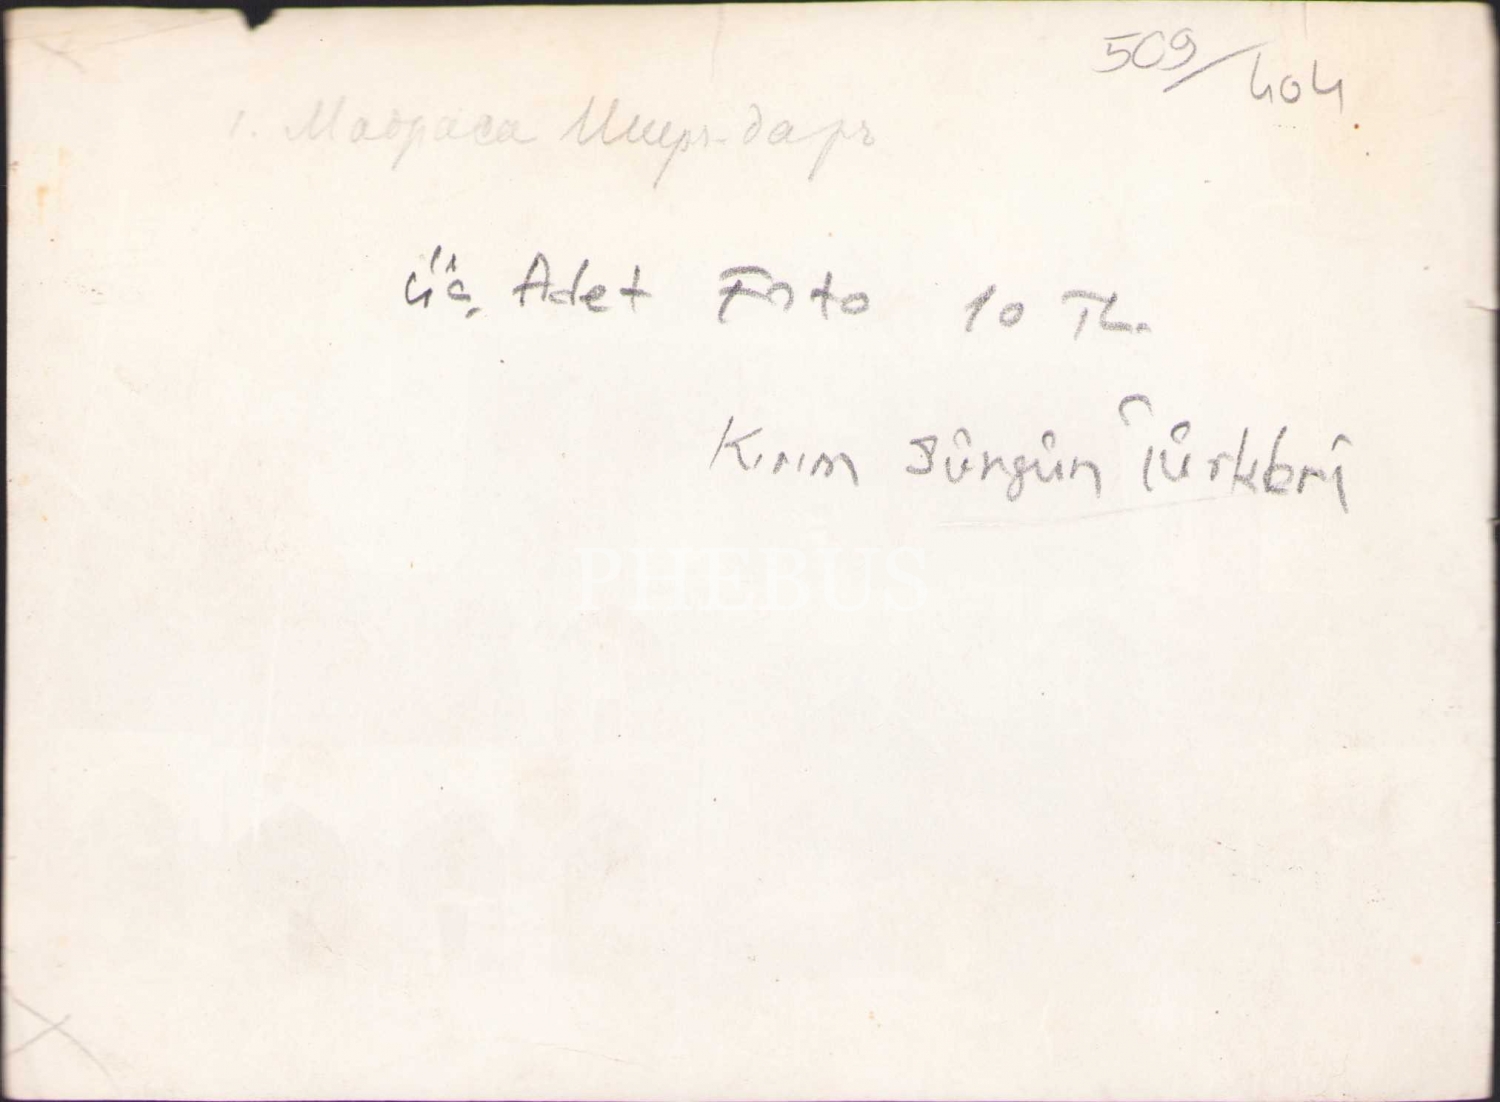 509/404
1. Мадраса Ширъ-даръ
üç Adet Foto 10 TL.
Kırım Sürgün Türkleri
PHEBUS